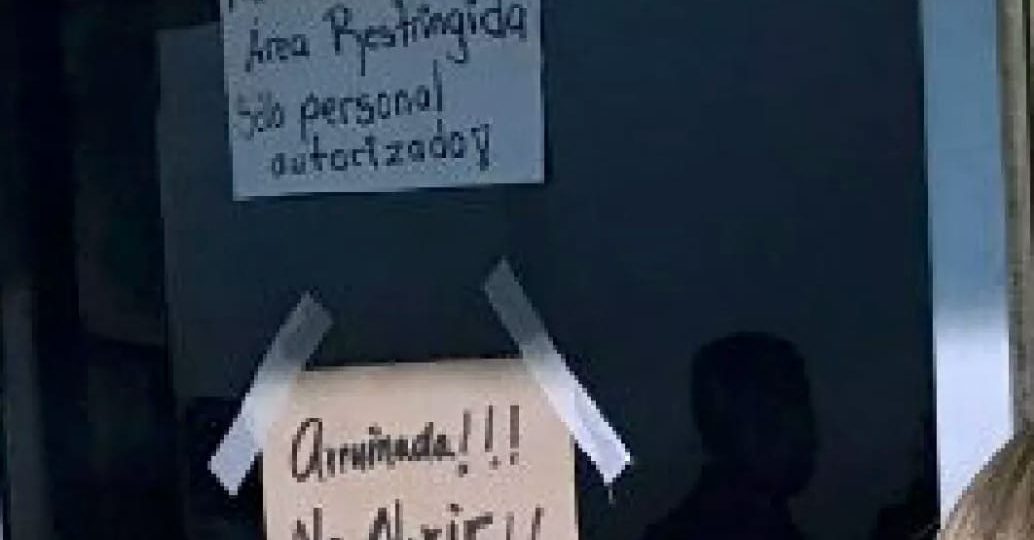 Área Restringida
Sólo personal
autorizado
Arruinada!!!
No Abrir!!